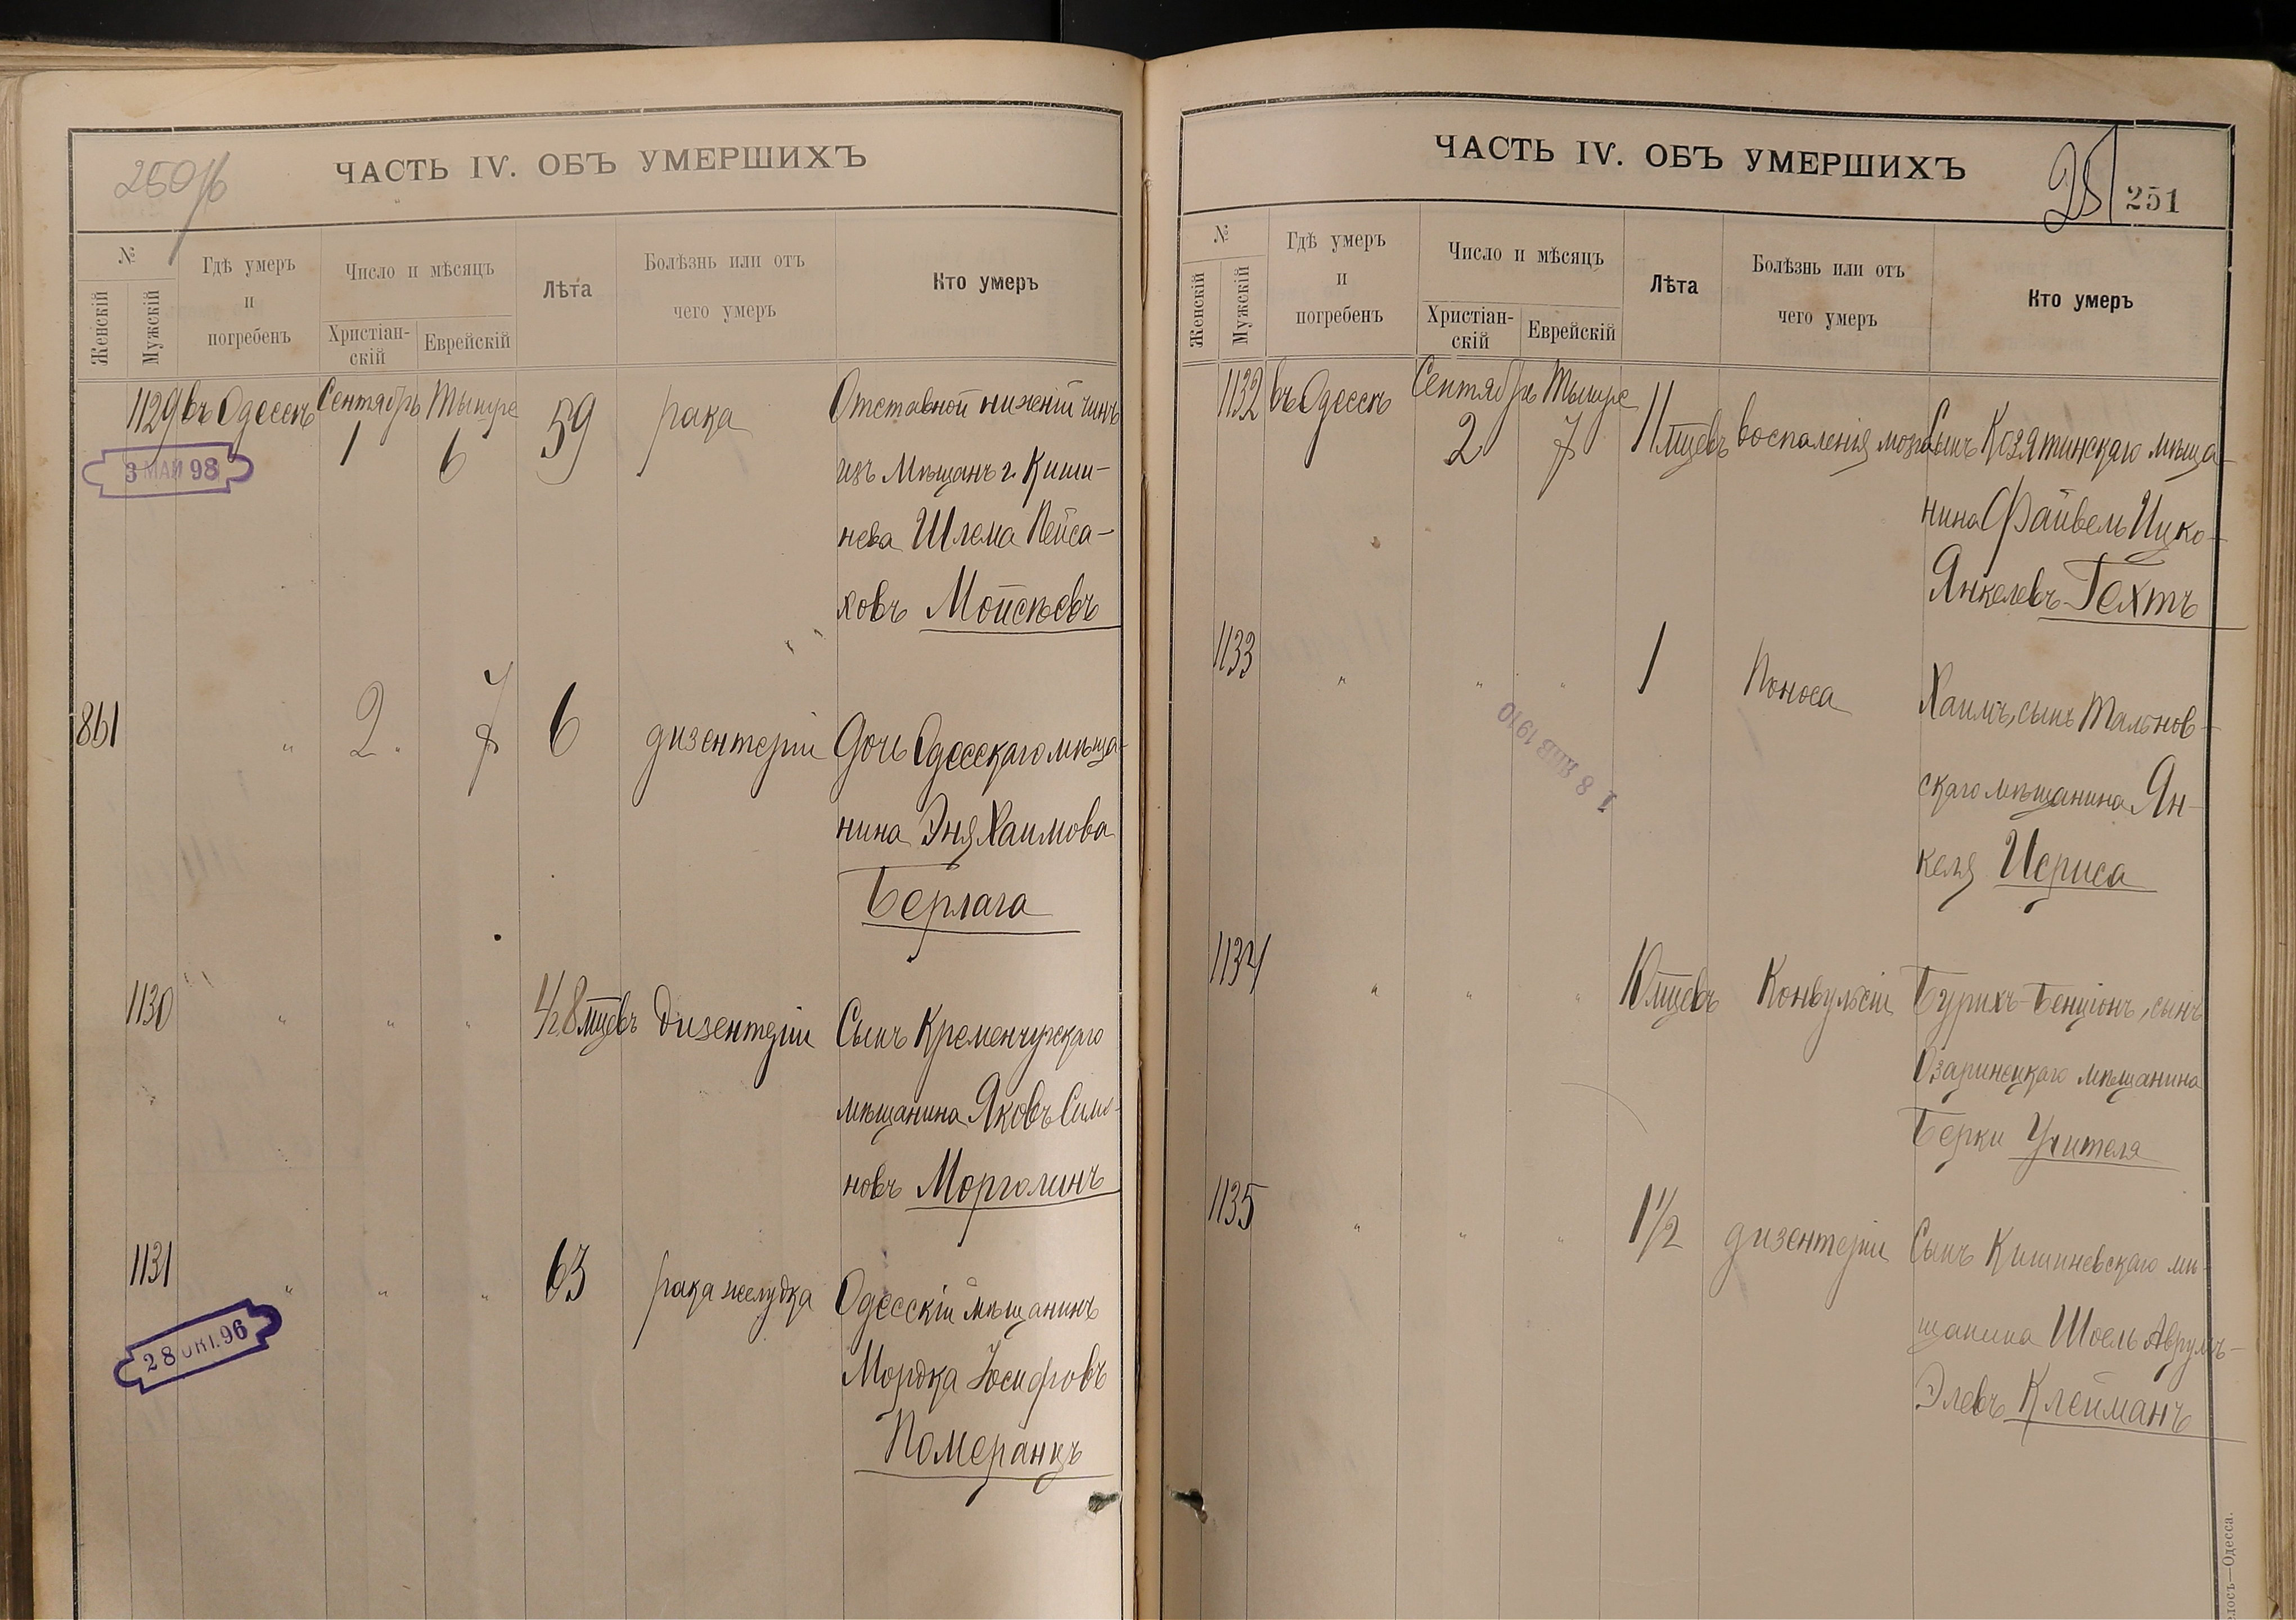 250об
ЧАСТЬ IV. ОБЪ УМЕРШИХЪ
№
Женскій
Мужскій
Гдѣ умеръ
и
погребенъ
Число и мѣсяцъ
Христіан-
скій
Еврейскій
Лѣта
Болѣзнь или отъ
чего умеръ
Кто умеръ
1129 въ Одессѣ Сентябрь 1 Тышре 6 59 рака Отставной нижній чинъ
изъ мѣщанъ г. Киши-
нева Шлема Пейса-
ховъ Мойсѣевъ
3 МАЙ 98
861 " 2. 7 6 дизентеріи Дочь Одесскаго мѣща-
нина Эня Хаимова
Берлага
1130 " " " 4/2 8 мцевъ дизентеріи Сынъ Кременчужскаго
мѣщанина Яковъ Симо-
новъ Морголинъ
1131 " " " 63 рака желудка Одесскій мѣщанинъ
Мордка Іосифовъ
Померанцъ
28 ОКТ. 96
ЧАСТЬ IV. ОБЪ УМЕРШИХЪ
251
251
№
Женскій
Мужскій
Гдѣ умеръ
и
погребенъ
Число и мѣсяцъ
Христіан-
скій
Еврейскій
Лѣта
Болѣзнь или отъ
чего умеръ
Кто умеръ
1132 въ Одессѣ Сентябрь 2 Тышре 7 11 мцевъ воспаленія мозга Сынъ Козятинскаго мѣща-
нина Файвель Ицко-
Янкелевъ Гехтъ
1133 " " " 1 Поноса Хаимъ, сынъ Тальнов-
скаго мѣщанина Ян-
келя Иериса
18 ЯНВ 1910
1134 " " " 10 мцевъ Конвульсіи Бурихъ-Бенціонъ, сынъ
Озаринецкаго мѣщанина
Берки Учителя
1135 " " " 1 1/2 дизентеріи Сынъ Кишиневскаго мѣ-
щанина Шоель Аврумъ-
Элевъ Клейманъ
—Одесса.